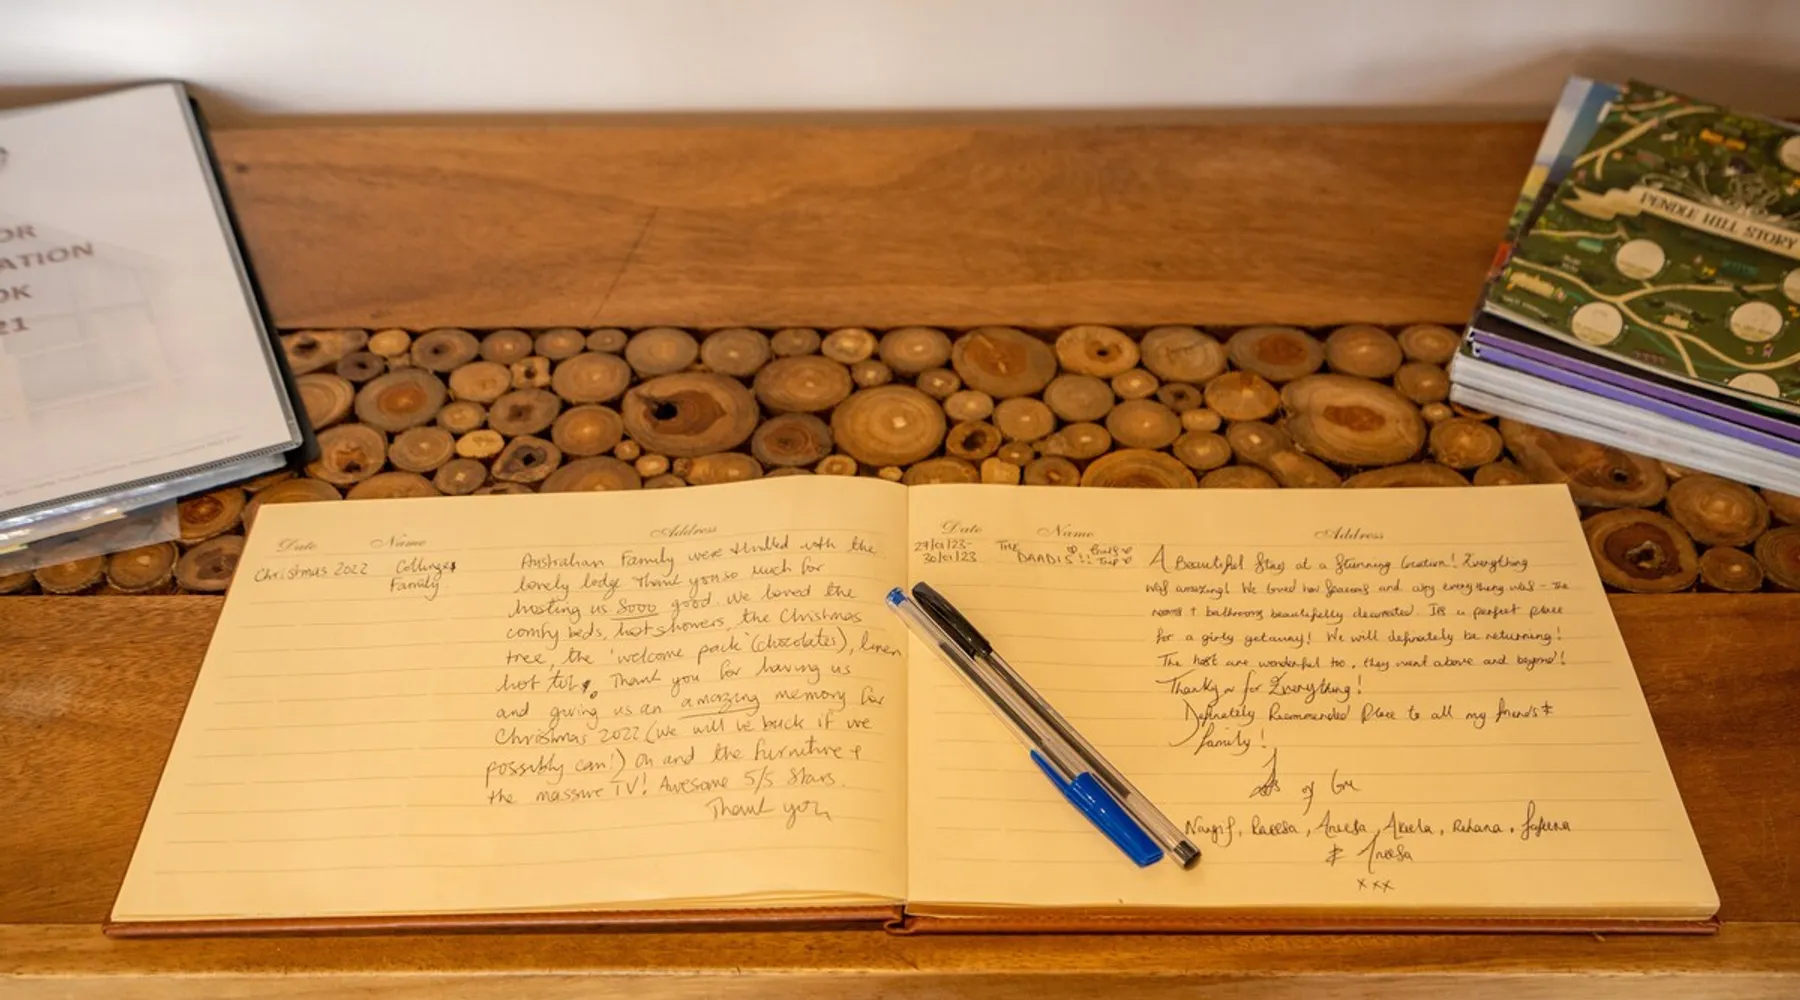 OR
ATION
OK
21
PENDLE HILL STORY
Date Name Address
Christmas 2022 Collinges
Family.
Australian Family were thrilled with the
lovely lodge Thank you so much for
hosting us Sooo good. We loved the
comfy beds, hot showers, the Christmas
tree, the 'welcome pack' (chocolates), linen
hot tub. Thank you for having us
and giving us an amazing memory for
Christmas 2022 (we will be back if we
possibly can!) Oh and the furniture +
the massive TV! Awesome 5/5 Stars.
Thank you
Date Name Address
29/01/23-
30/01/23
THE
DAADIS!! Girls
Trip
A Beautiful Stay at a Stunning Location! Everything
was amazing! We loved how spacious and cosy everything was - The
rooms + bathrooms beautifully decorated. Its a perfect place
for a girly getaway! We will definitely be returning!
The host are wonderful too, they went above and beyond!
Thankyou for Everything!
Definately Recommended Place to all my friends &
family!
of
Nargis, Raeesa, Aneesa, Akeela, Rehana,
& Aneesa
xxx